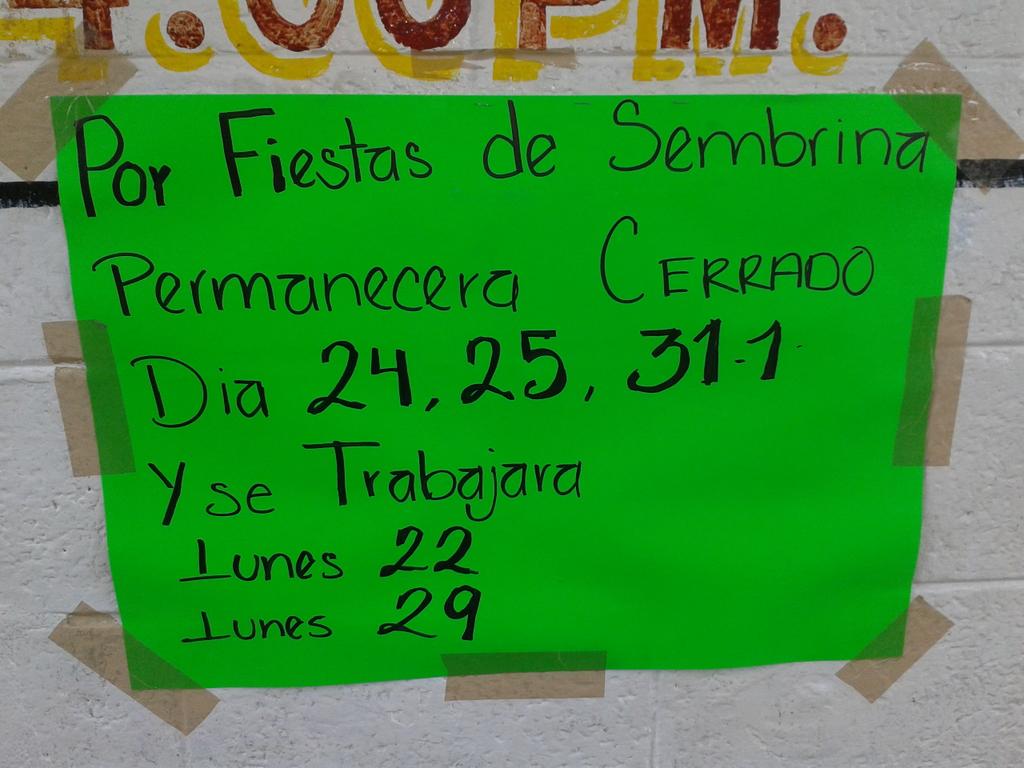 4:00PM.
Por Fiestas de Sembrina
Permanecera CERRADO
Dia 24, 25, 31-1
Y se Trabajara
Lunes 22
Lunes 29